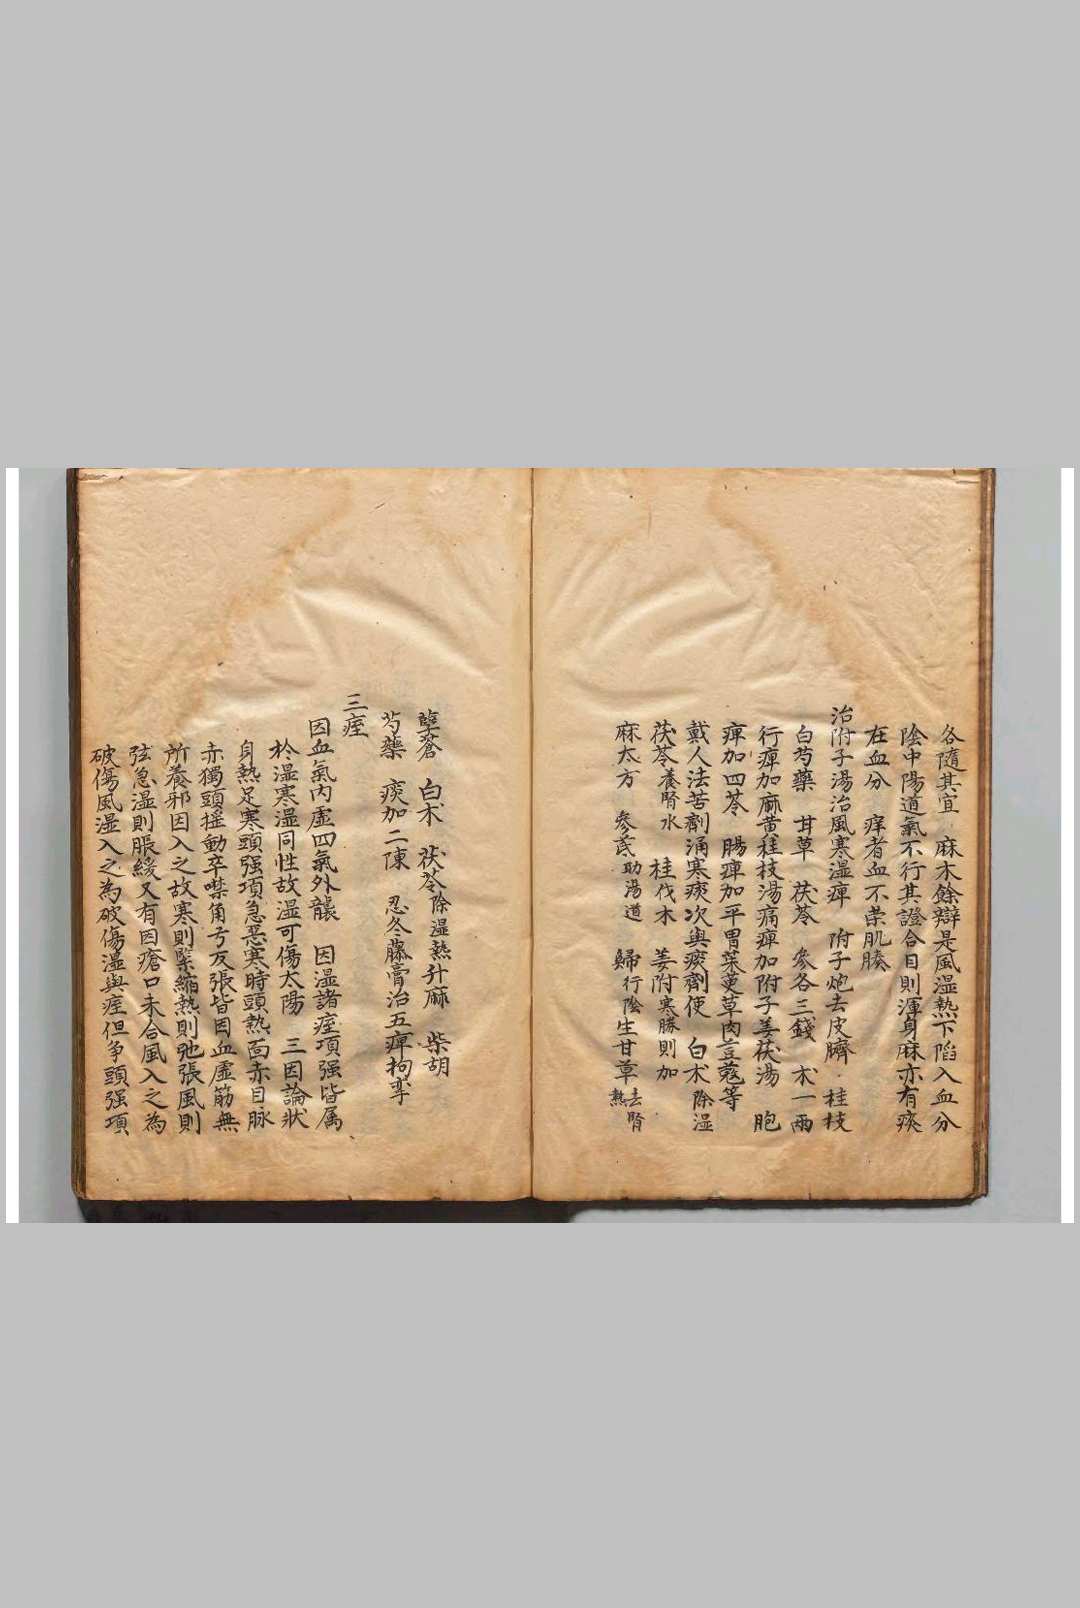 各隨其宜　麻木餘辯是風湿熱下陷入血分
陰中陽道氣不行其證合目則渾身麻亦有痰
在血分　痒者血不荣肌腠
治附子湯治風寒湿痺　附子炮去皮臍　桂枝
白芍藥　甘草　茯苓　參各三錢　术一兩
行痺加麻黄桂枝湯痛痺加附子姜茯湯　胞
痺加四苓　腸痺加平胃茱萸草肉荳蔻等
戴人法苦劑涌寒痰次與痰劑使　白术除湿
茯苓養腎水　桂伐木　姜附寒勝則加
麻太方　參芪助湯道　歸行陰生甘草去腎熱
蒼　白术　茯苓除湿熱升麻　柴胡
芍藥　痰加二陳　忍冬藤膏治五痺拘挛
三痓
因血氣内虚四氣外襲　因湿諸痓項强皆属
於湿寒湿同性故湿可傷太陽　三因論状
身熱足寒頭强項急惡寒時頭熱面赤目脉
赤獨頭揺動卒噤角弓反張皆因血虚筋無
所養邪因入之故寒則緊縮熱則弛張風則
弦急湿則脹緩又有因瘡口未合風入之為
破傷風湿入之為破傷湿與痓但争頭强項